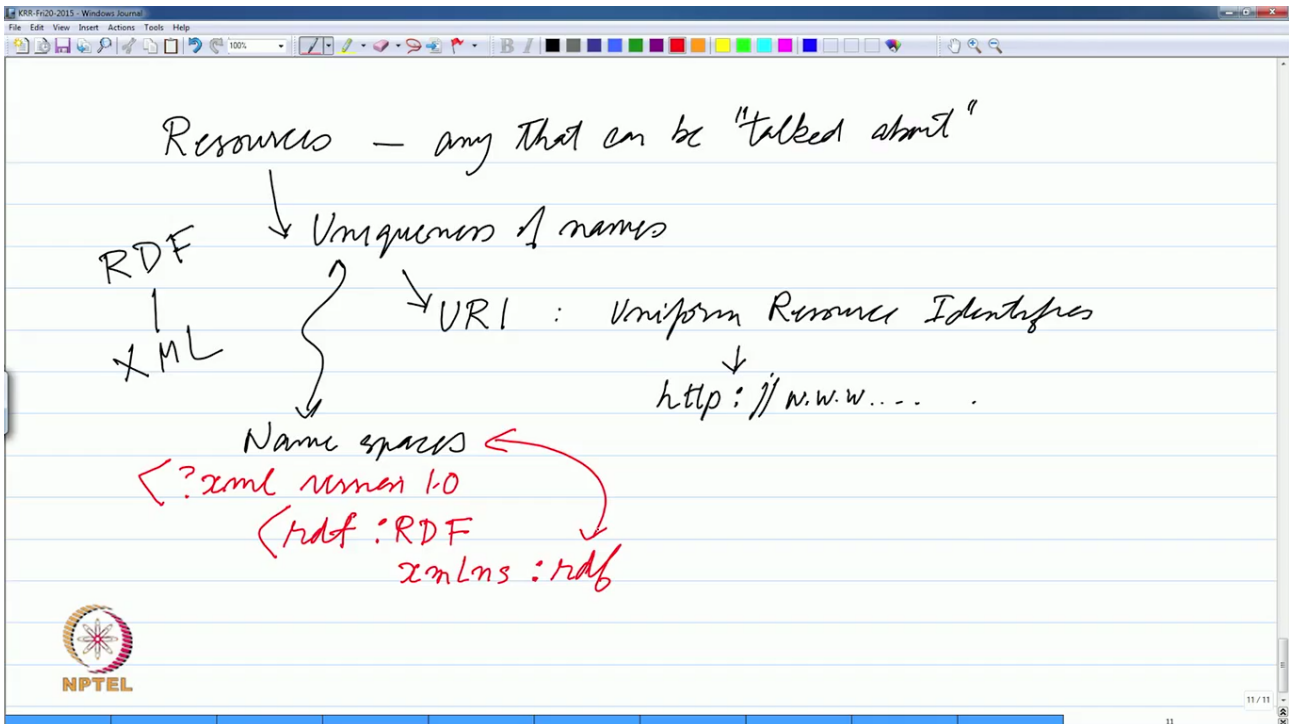 KRR-Fri20-2015 - Windows Journal
File Edit View Insert Actions Tools Help
100%
B I
Resources — any that can be "talked about"
Uniqueness of names
RDF
XML
URI : Uniform Resource Identifies
http://w.w.w.... .
Name spaces
<?xml version 1.0
<rdf:RDF
xmlns:rdf
NPTEL
11 / 11
11